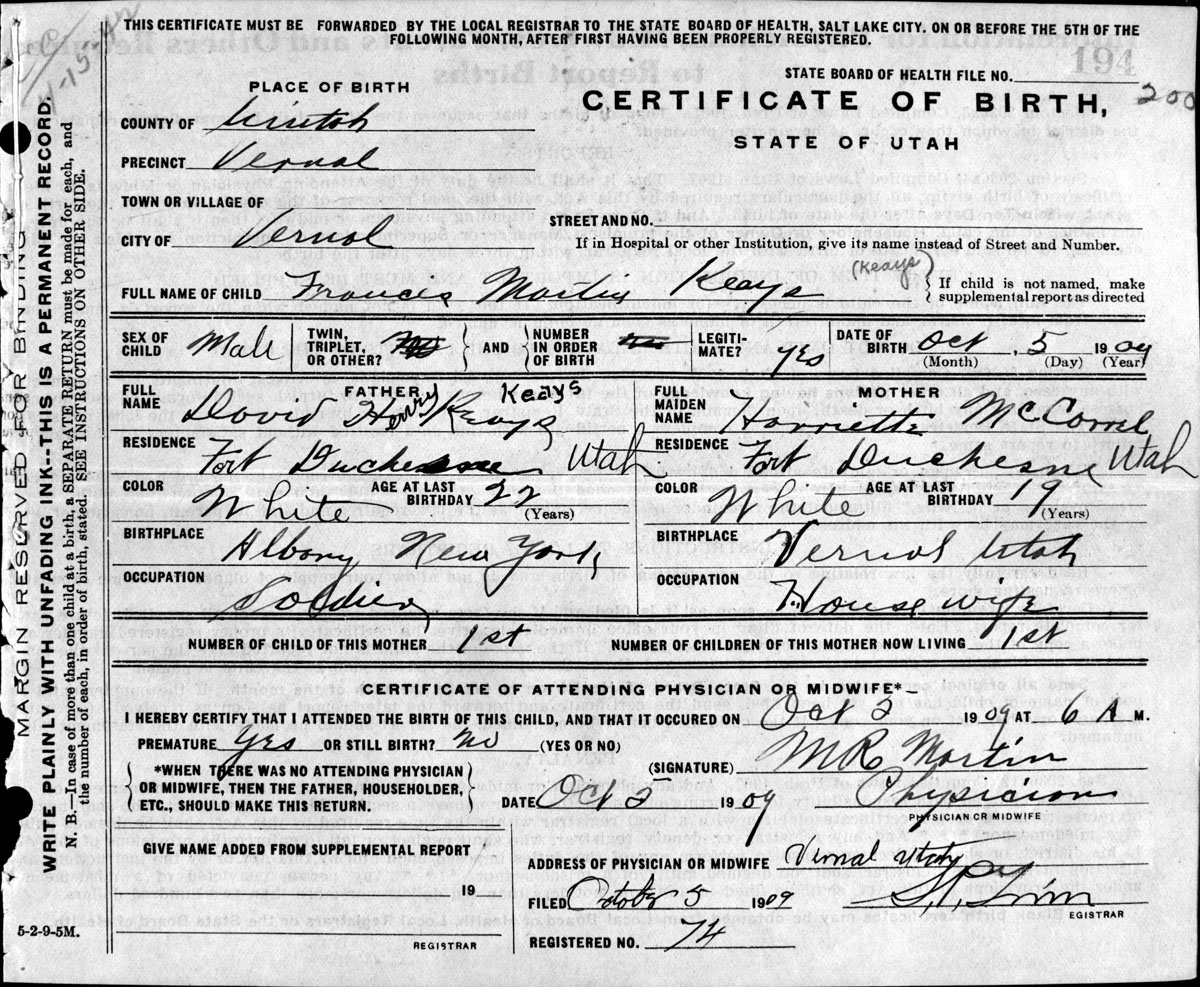 THIS CERTIFICATE MUST BE FORWARDED BY THE LOCAL REGISTRAR TO THE STATE BOARD OF HEALTH, SALT LAKE CITY. ON OR BEFORE THE 5TH OF THE
FOLLOWING MONTH, AFTER FIRST HAVING BEEN PROPERLY REGISTERED.
194
STATE BOARD OF HEALTH FILE NO.
200
PLACE OF BIRTH
CERTIFICATE OF BIRTH,
STATE OF UTAH
COUNTY OF Uintah
PRECINCT Vernal
TOWN OR VILLAGE OF
STREET AND NO.
CITY OF Vernal
If in Hospital or other Institution, give its name instead of Street and Number.
(Keays)
FULL NAME OF CHILD Frances Keays { If child is not named, make
supplemental report as directed
SEX OF CHILD Male TWIN, TRIPLET, OR OTHER? } AND { NUMBER IN ORDER OF BIRTH LEGITI-MATE? yes DATE OF BIRTH Oct, 5 1909
(Month) (Day) (Year)
FATHER
FULL NAME David Henry Keays Keays
RESIDENCE Fort Duchesne Utah
COLOR White AGE AT LAST BIRTHDAY 22 (Years)
BIRTHPLACE Albany New York
OCCUPATION Soldier
MOTHER
FULL MAIDEN NAME Harriette
RESIDENCE Fort Duchesne Utah
COLOR White AGE AT LAST BIRTHDAY 19 (Years)
BIRTHPLACE Vernal Utah
OCCUPATION House wife
NUMBER OF CHILD OF THIS MOTHER 1st NUMBER OF CHILDREN OF THIS MOTHER NOW LIVING 1st
CERTIFICATE OF ATTENDING PHYSICIAN OR MIDWIFE*—
I HEREBY CERTIFY THAT I ATTENDED THE BIRTH OF THIS CHILD, AND THAT IT OCCURED ON Oct 5 1909 AT 6 A M.
PREMATURE Yes OR STILL BIRTH? No (YES OR NO)
{ *WHEN THERE WAS NO ATTENDING PHYSICIAN
OR MIDWIFE, THEN THE FATHER, HOUSEHOLDER,
ETC., SHOULD MAKE THIS RETURN. }
(SIGNATURE) M R Martin
DATE Oct 5 1909 Physician
PHYSICIAN OR MIDWIFE
GIVE NAME ADDED FROM SUPPLEMENTAL REPORT
19
REGISTRAR
ADDRESS OF PHYSICIAN OR MIDWIFE Vernal Utah
FILED October 5 1909
EGISTRAR
REGISTERED NO. 74
5-2-9-5M.
MARGIN RESERVED FOR BINDING
WRITE PLAINLY WITH UNFADING INK--THIS IS A PERMANENT RECORD.
N. B.—In case of more than one child at a birth, a SEPARATE RETURN must be made for each, and
the number of each, in order of birth, stated. SEE INSTRUCTIONS ON OTHER SIDE.